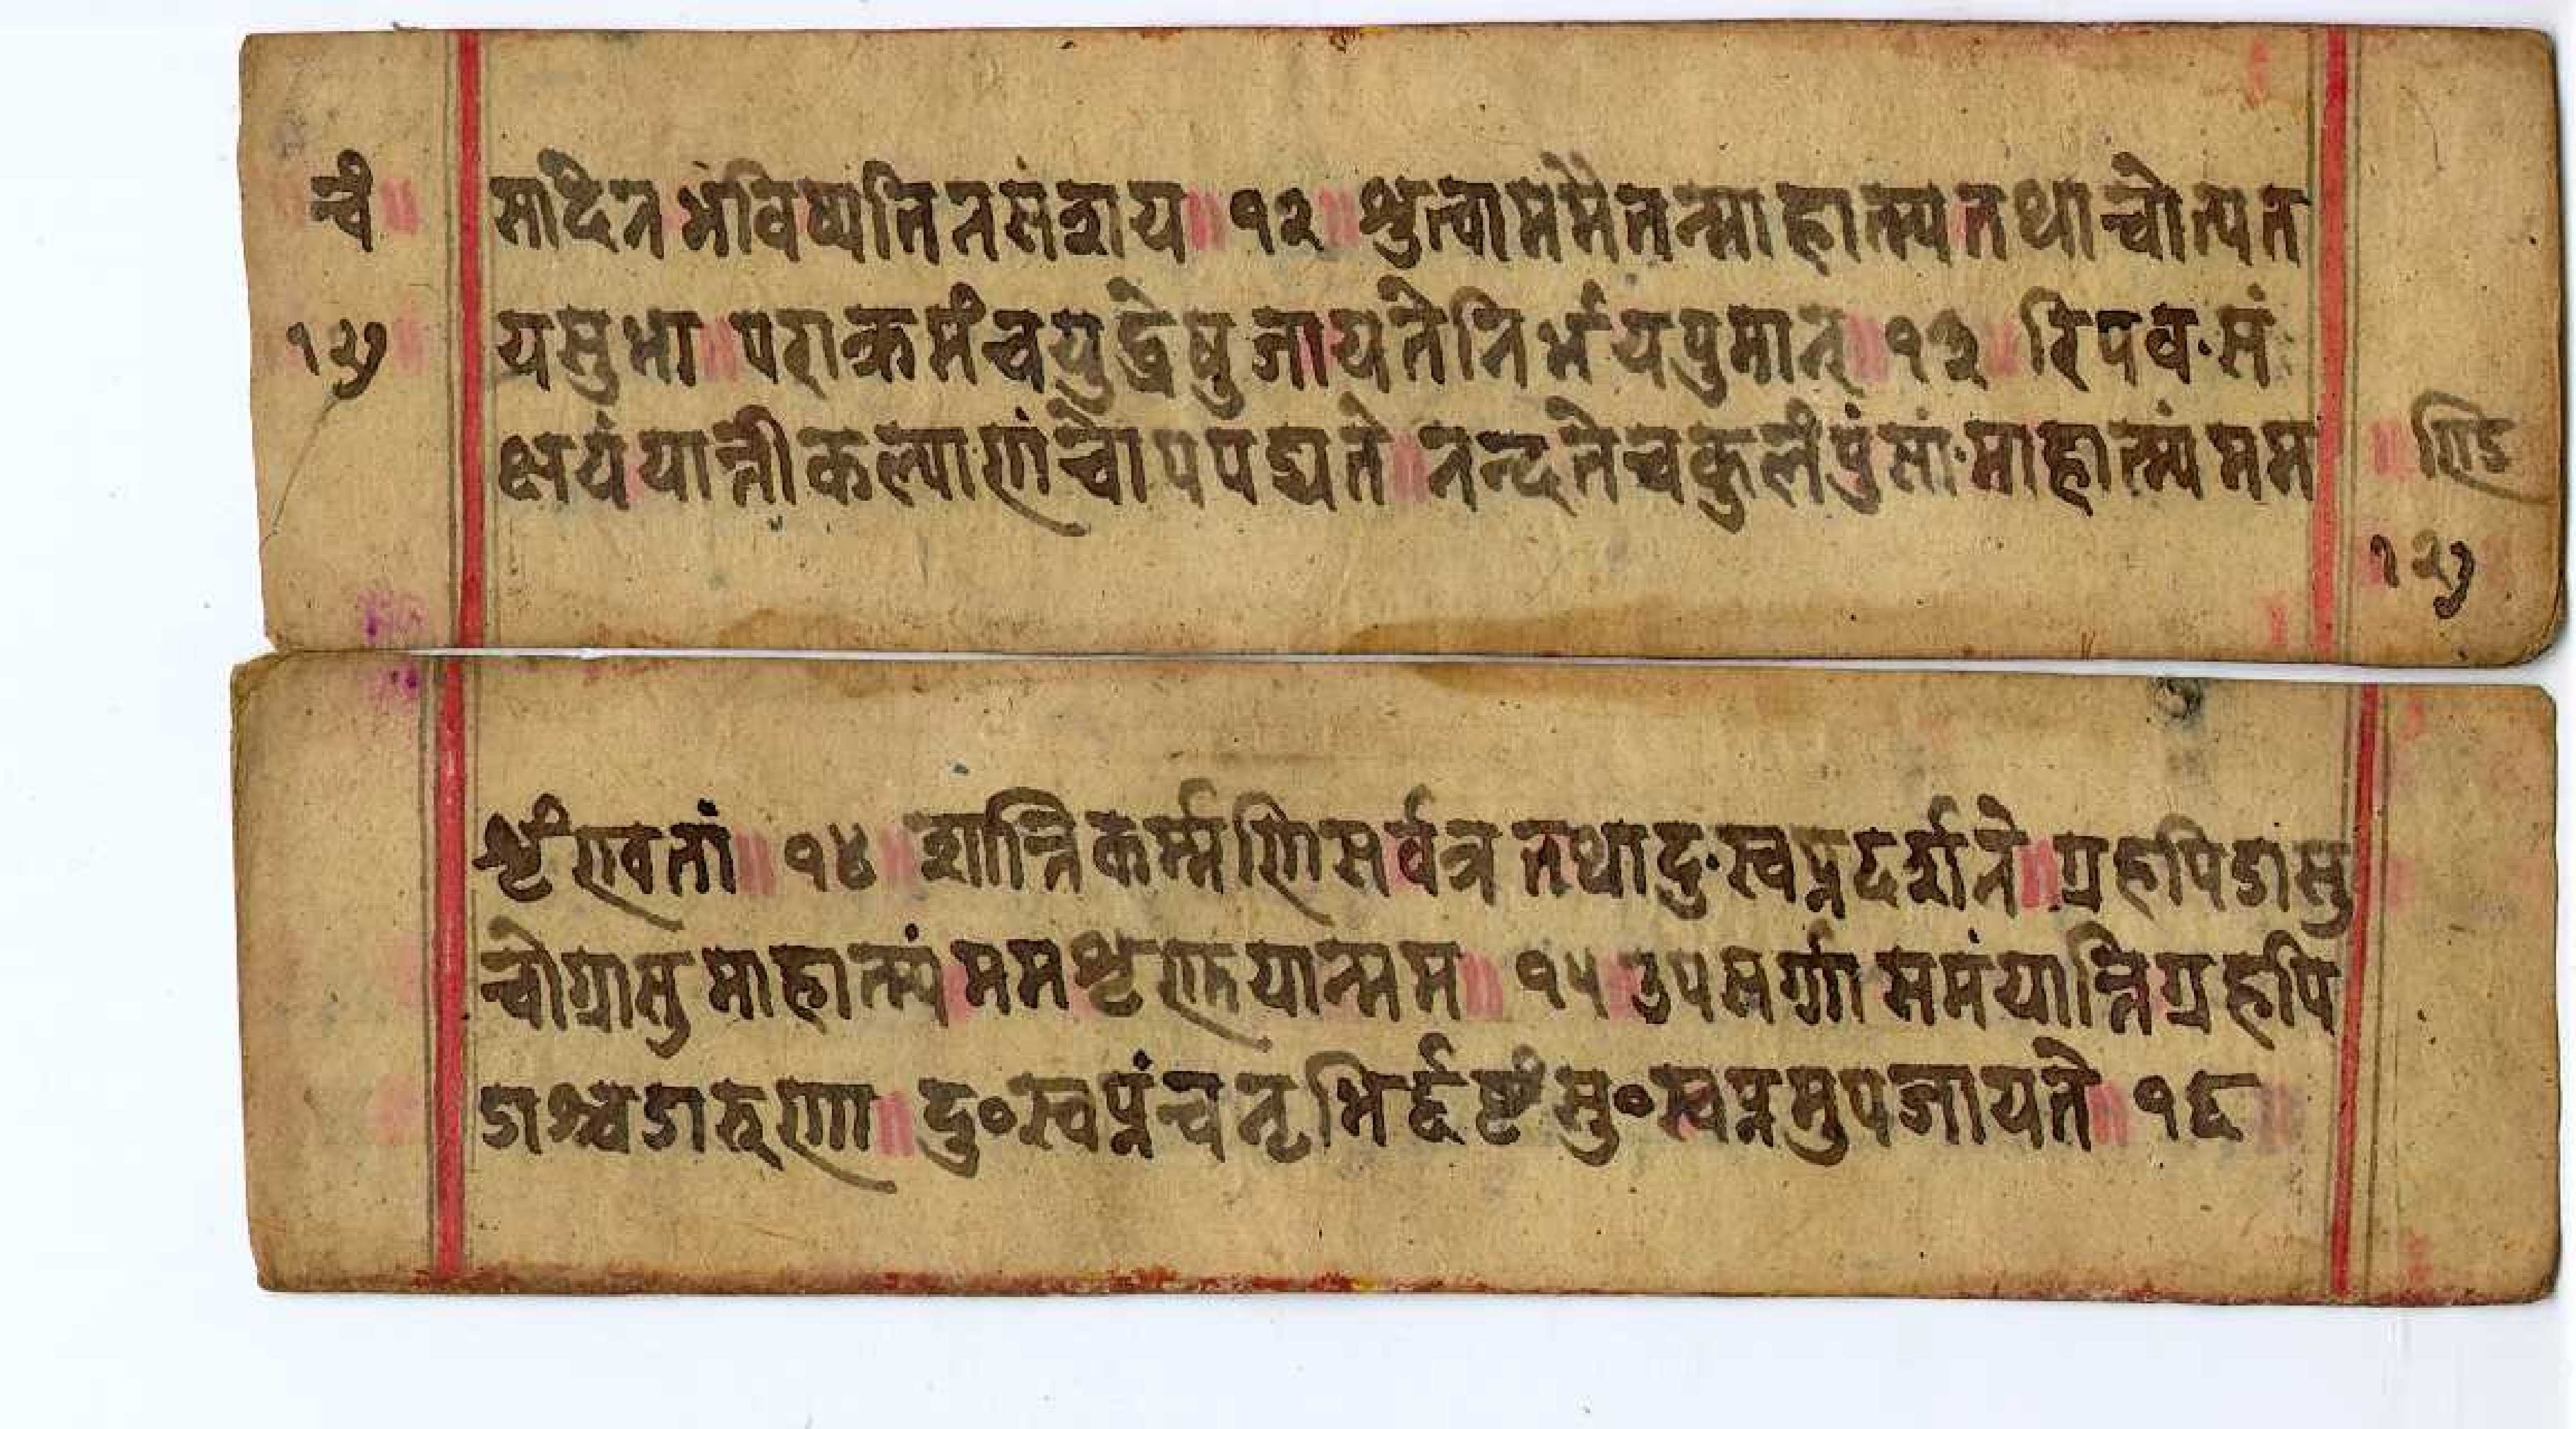 चै
१२७
सादेन भविष्यति न संशय ॥ १२ ॥ श्रुत्वा ममैतन्माहात्म्य तथा चोत्पत
य सुभा ॥ पराक्रमं च युद्धेषु जायते निर्भय पुमान् ॥ १३ ॥ रिपवः सं
क्षयं यान्ती कल्याणं चोपपद्यते ॥ नन्दते च कुलं पुंसां माहात्म्यं मम
ण्डि
१२७
शृंण्वतां ॥ १४ ॥ शान्तिकर्म्मणि सर्वत्र तथा दुःस्वप्नदर्शने ॥ ग्रहपिडासु
चोग्रासु माहात्म्यं मम शृणुयान्मम ॥ १५ ॥ उपसर्गा समंयान्ति ग्रहपि
डाश्च डारुणा ॥ दु॰स्वप्नंच नृभिर्द्दष्टं सु॰स्वप्नमुपजायते ॥ १६ ॥